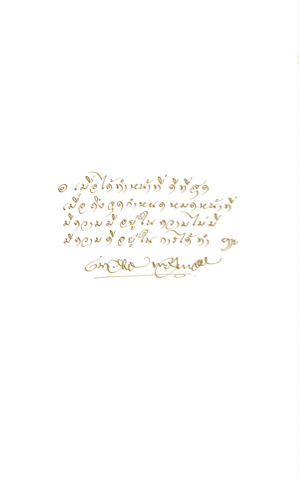 ๏ เมื่อได้ทำหน้าที่ ดีที่สุด
เมื่อถึงจุดกำหนดหมดหน้าที่
มีความมีอยู่ใน ความไม่มี
มีความดีอยู่ใน การได้ทำ ๚ะ